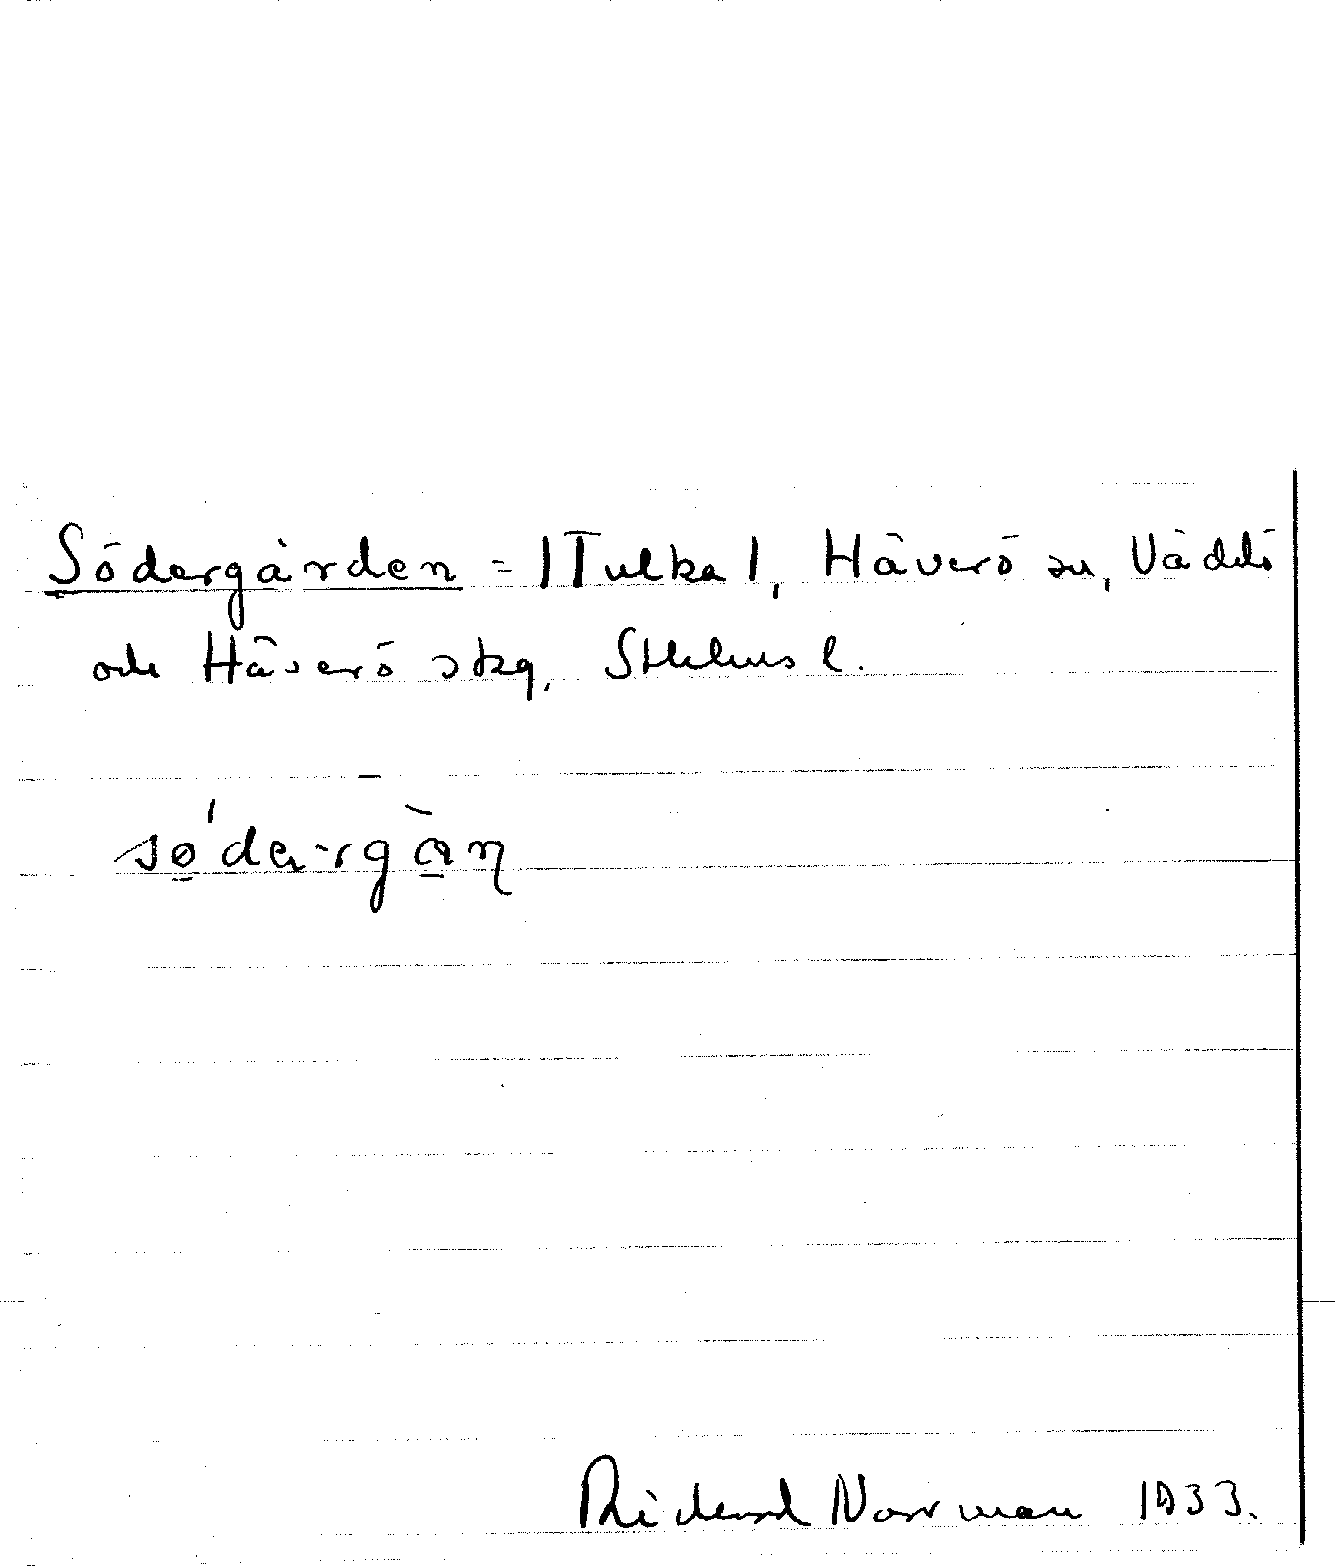 Södergården = /Tulka/, Häverö sn, Väddö
och Häverö skg, Sthlms l.
sǿ̱dərgɑ̱̀ɳ
Richard Norrman 1933.